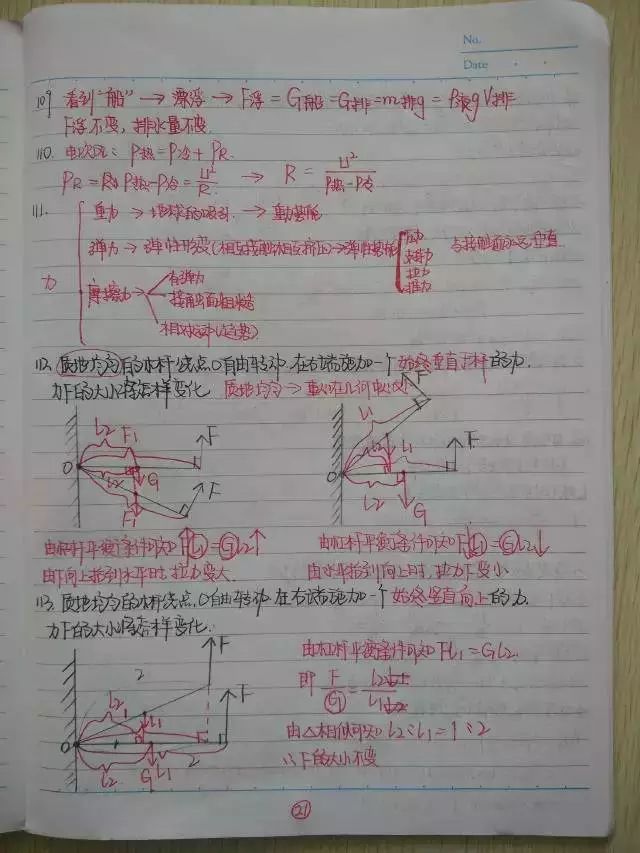 No.
Date
109 看到"船" → 漂浮 → F浮 = G船 = G排 = m排g = ρ液gV排
F浮不变, 排水量不变.
110.
P热 = P冷 + PR
PR = P热 - P冷 = U²/R → R = U²/(P热-P冷)
111.
重力 → 地球的吸引 →
弹力 → 弹性形变(相互接触相互挤压) →
压力
支持力
拉力
推力
力
摩擦力
有弹力
接触面粗糙
相对运动(趋势)
112. 质地均匀的木杆绕点O自由转动. 在右端施加一个始终垂直于杆的力.
力F的大小将怎样变化. 质地均匀 → 重心在几何中心处
L2 F1 F
O G F
F1
L1 F
L2 L1 F
O L2 G
由杠杆平衡条件可知 FL1=GL2↑
由下向上抬到水平时, 拉力变大.
由杠杆平衡条件可知 FL1=GL2↓
由水平抬到向上时, 拉力F变小
113. 质地均匀的木杆绕点O自由转动. 在右端施加一个始终竖直向上的力.
力F的大小将怎样变化.
F
2
L2 L1 F
O
L2 G L1 2
由杠杆平衡条件可知 FL1=GL2.
即 F/G = L2/L1
由△相似可知 L2:L1=1:2
∴F的大小不变
21